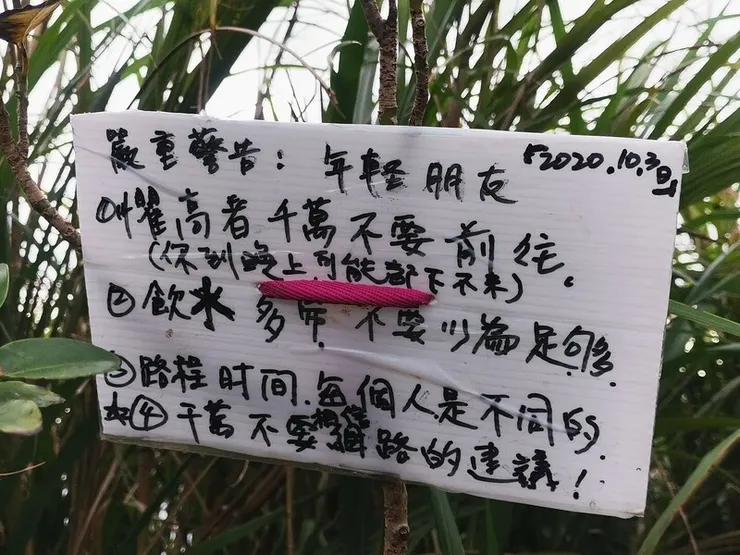 嚴重警告：年輕朋友 2020.10.3日
①懼高者千萬不要前往。
(你到晚上可能都下不來)
②飲水多帶不要以為足夠.
③路程时间.每個人是不同的
④千萬不要相信網路的建議！